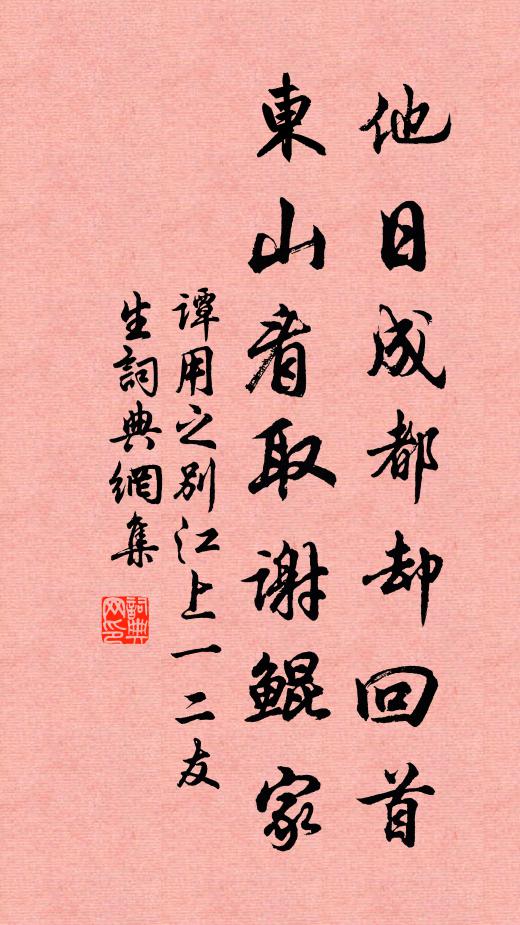 他日成都却回首
東山看取謝鯤家
谭用之别江上一二友
生詞典網集
詞典网印